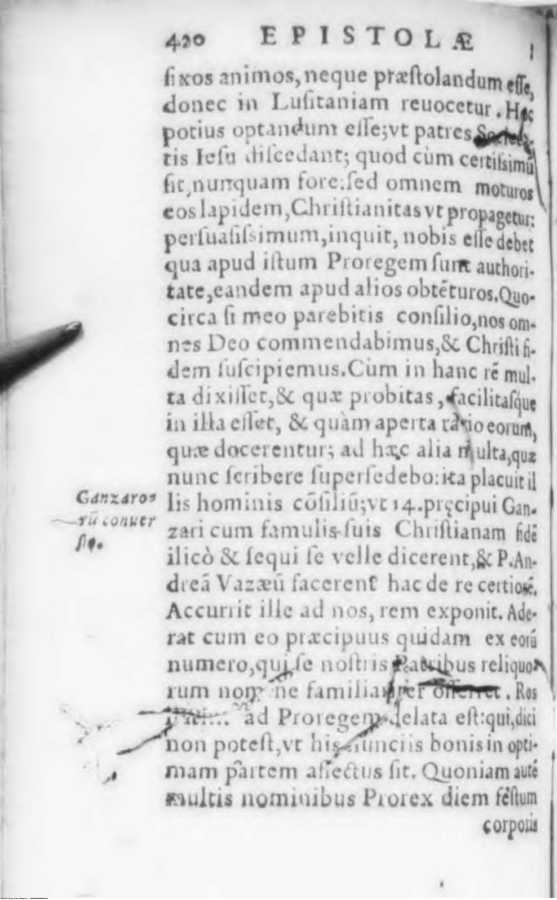 420 EPISTOLÆ
fixos animos, neque præſtolandum eſſe,
donec in Luſitaniam reuocetur. Hoc
potius optandum eſſe; vt patres Societa-
tis Ieſu diſcedant; quod cùm certiſsimũ
ſit, nunquam fore: ſed omnem moturos
eos lapidem, Chriſtianitas vt propagetur:
perſuaſiſsimum, inquit, nobis eſſe debet
qua apud iſtum Proregem ſunt authori-
tate, eandem apud alios obtẽturos. Quo-
circa ſi meo parebitis conſilio, nos om-
nes Deo commendabimus, & Chriſti fi-
dem ſuſcipiemus. Cùm in hanc rẽ mul-
ta dixiſſet, & quæ probitas, facilitaſque
in illa eſſet, & quàm aperta ratio eorum,
quæ docerentur; ad hæc alia multa, quæ
nunc ſcribere ſuperſedebo: ita placuit il
Ganzaro-
rũ conuer
ſio.
lis hominis cõſiliũ; vt 14. pręcipui Gan-
zari cum famulis ſuis Chriſtianam fidẽ
ilicò & ſequi ſe velle dicerent, & P. An-
dreã Vazæũ facerent hac de re certiorẽ.
Accurrit ille ad nos, rem exponit. Ade-
rat cum eo præcipuus quidam ex eorũ
numero, qui ſe noſtris Patribus reliquo-
rum nomine familiariter offerret. Res
ad Proregem delata eſt: qui, dici
non poteſt, vt his nunciis bonis in opti-
mam partem affectus ſit. Quoniam autẽ
multis nominibus Prorex diem feſtum
corporis